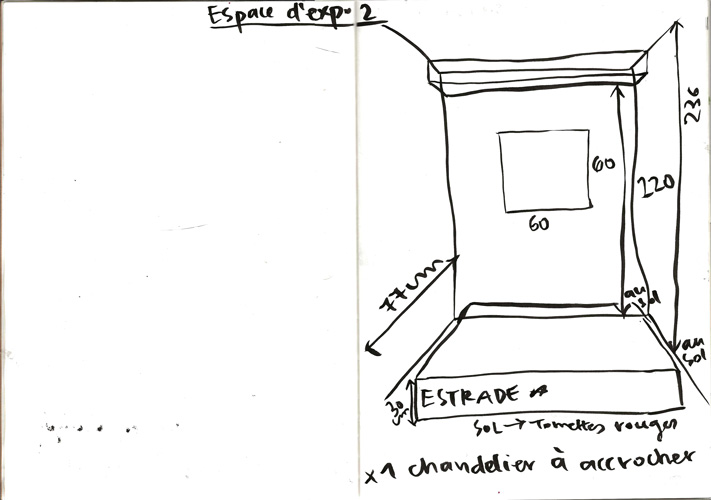 Espace d'expo 2
236
60
220
60
77cm
au sol
au sol
30 cm
ESTRADE *
SOL → Tomettes rouges
x1 chandelier à accrocher